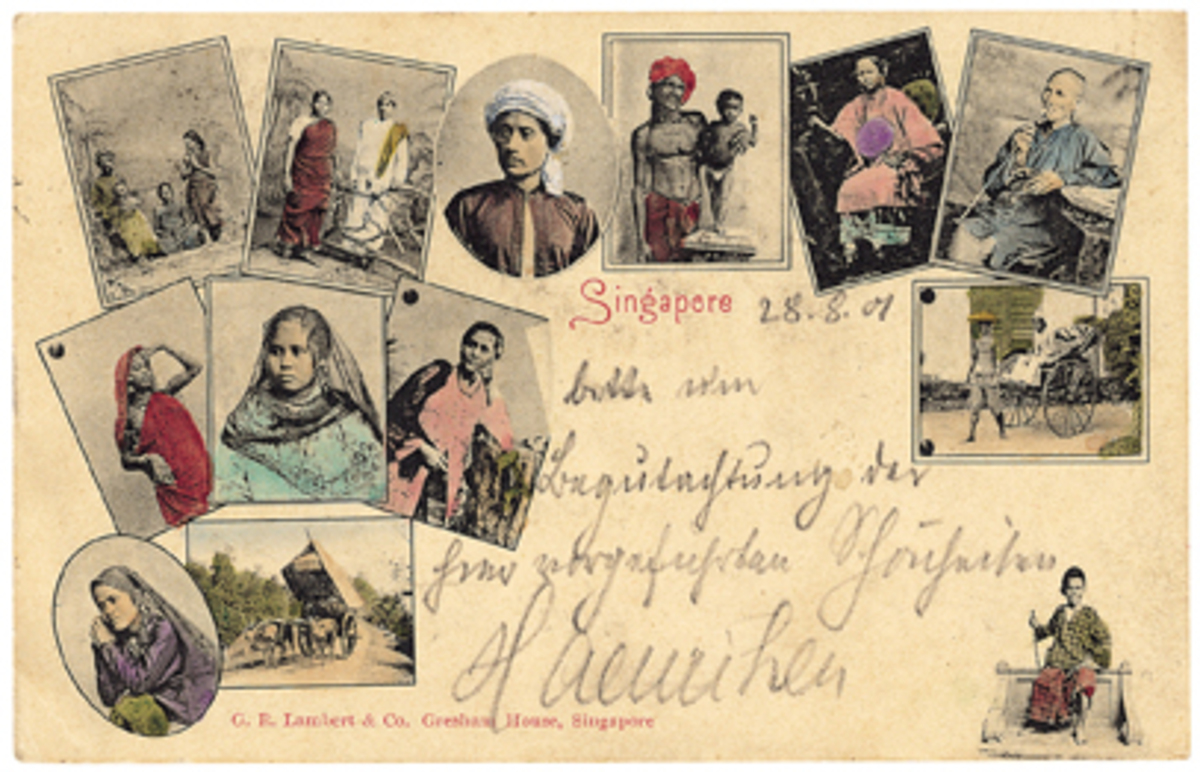 Singapore 28.8.01
bitte um
Begutachtung der
hier vorgeführten Schönheiten
G. R. Lambert & Co. Gresham House, Singapore